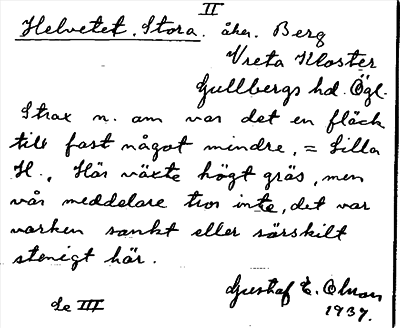 II
Helvetet, Stora. åker. Berg
Vreta Kloster
Gullbergs hd. Ögl.
Strax n. om var det en fläck
till fast något mindre, = Lilla
H. Här växte högt gräs, men
vår meddelare tror inte, det var
varken sankt eller särskilt
stenigt här.
Gustaf E. Olson
1937.
Se III